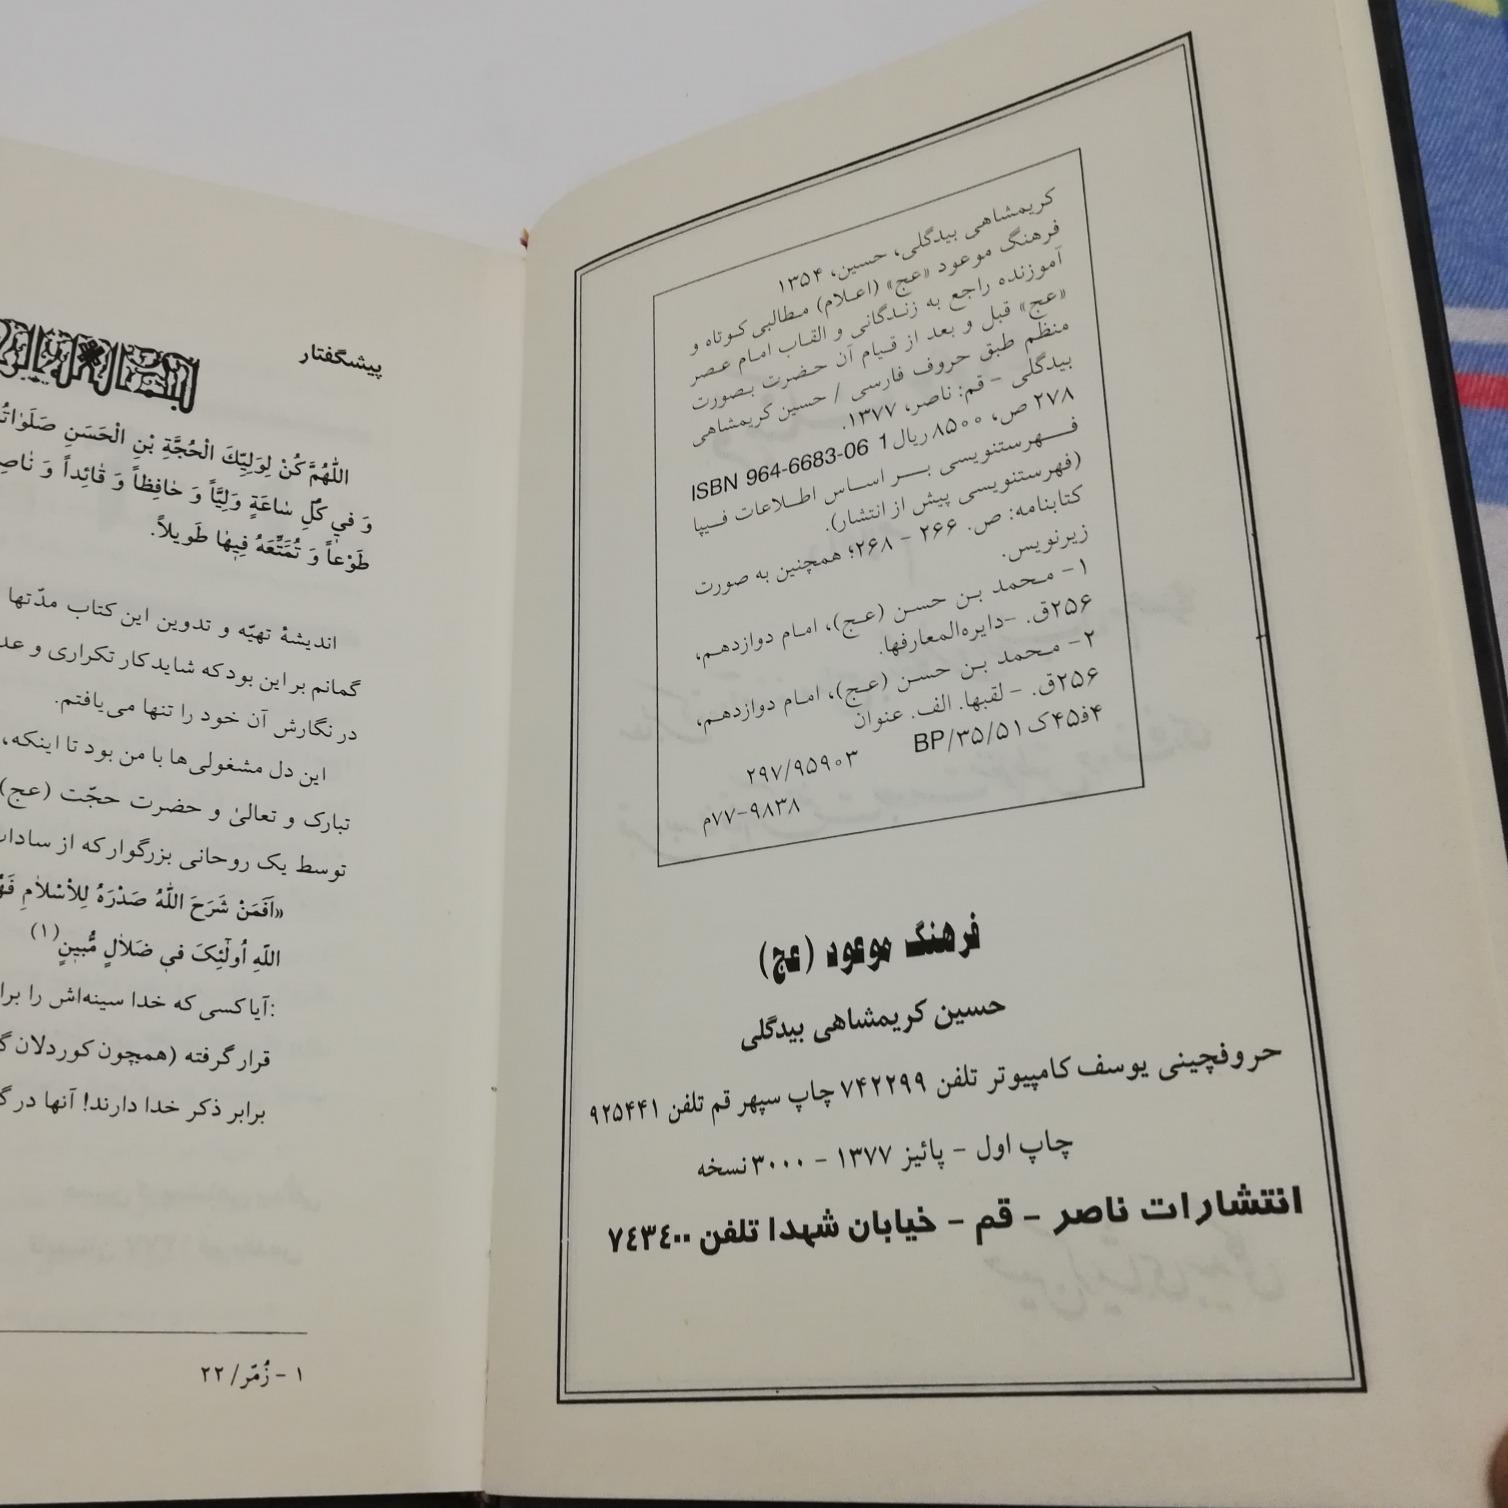 کریمشاهی بیدگلی، حسین، ۱۳۵۴
فرهنگ موعود «عج» (اعلام) مطالبی کوتاه و
آموزنده راجع به زندگانی و القاب امام عصر
«عج» قبل و بعد از قیام آن حضرت بصورت
منظم طبق حروف فارسی / حسین کریمشاهی
بیدگلی - قم: ناصر، ۱۳۷۷.
۲۷۸ ص، ۸۵۰۰ ریال ISBN 964-6683-06 1
فهرستنویسی بر اساس اطلاعات فیپا
(فهرستنویسی پیش از انتشار).
کتابنامه: ص. ۲۶۶ - ۲۶۸؛ همچنین به صورت
زیرنویس.
۱- محمد بن حسن (عج)، امام دوازدهم،
۲۵۶ق. -دایره‌المعارفها.
۲- محمد بن حسن (عج)، امام دوازدهم،
۲۵۶ق. - لقبها. الف. عنوان
۴ف۴۵ک/BP۳۵/۵۱
۲۹۷/۹۵۹۰۳
۷۷-۹۸۳۸م
فرهنگ موعود (عج)
حسین کریمشاهی بیدگلی
حروفچینی یوسف کامپیوتر تلفن ۷۴۲۲۹۹ چاپ سپهر قم تلفن ۹۲۵۴۴۱
چاپ اول - پائیز ۱۳۷۷ - ۳۰۰۰ نسخه
انتشارات ناصر - قم - خیابان شهدا تلفن ۷٤۳٤۰۰
پیشگفتار
اللّٰهُمَّ كُنْ لِوَلِيِّكَ الْحُجَّةِ بْنِ الْحَسَنِ
وَ في كُلِّ سٰاعَةٍ وَلِيّاً وَ حٰافِظاً وَ قٰائِداً وَ
طَوْعاً وَ تُمَتِّعَهُ فِيهٰا طَويلاً.
اندیشهٔ تهیّه و تدوین این کتاب مدّتها
گمانم بر این بود که شاید کار تکراری و
در نگارش آن خود را تنها می‌یافتم.
این دل مشغولی‌ها با من بود تا اینکه،
تبارک و تعالیٰ و حضرت حجّت (عج)
توسط یک روحانی بزرگوار که از
«اَفَمَنْ شَرَحَ اللّٰهُ صَدْرَهُ لِلاْسْلاٰمِ
اللّٰهِ اُولٰٓئِکَ في ضَلاٰلٍ مُّبينٍ(۱)
:آیا کسی که خدا سینه‌اش را
قرار گرفته (همچون کوردلان
برابر ذکر خدا دارند! آنها در
۱ - زُمَر/ ۲۲